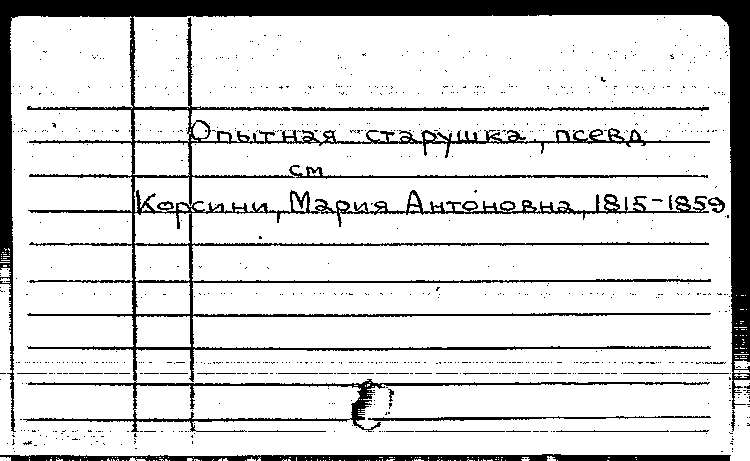 Опытная старушка, псевд
см
Корсини, Мария Антоновна, 1815-1859